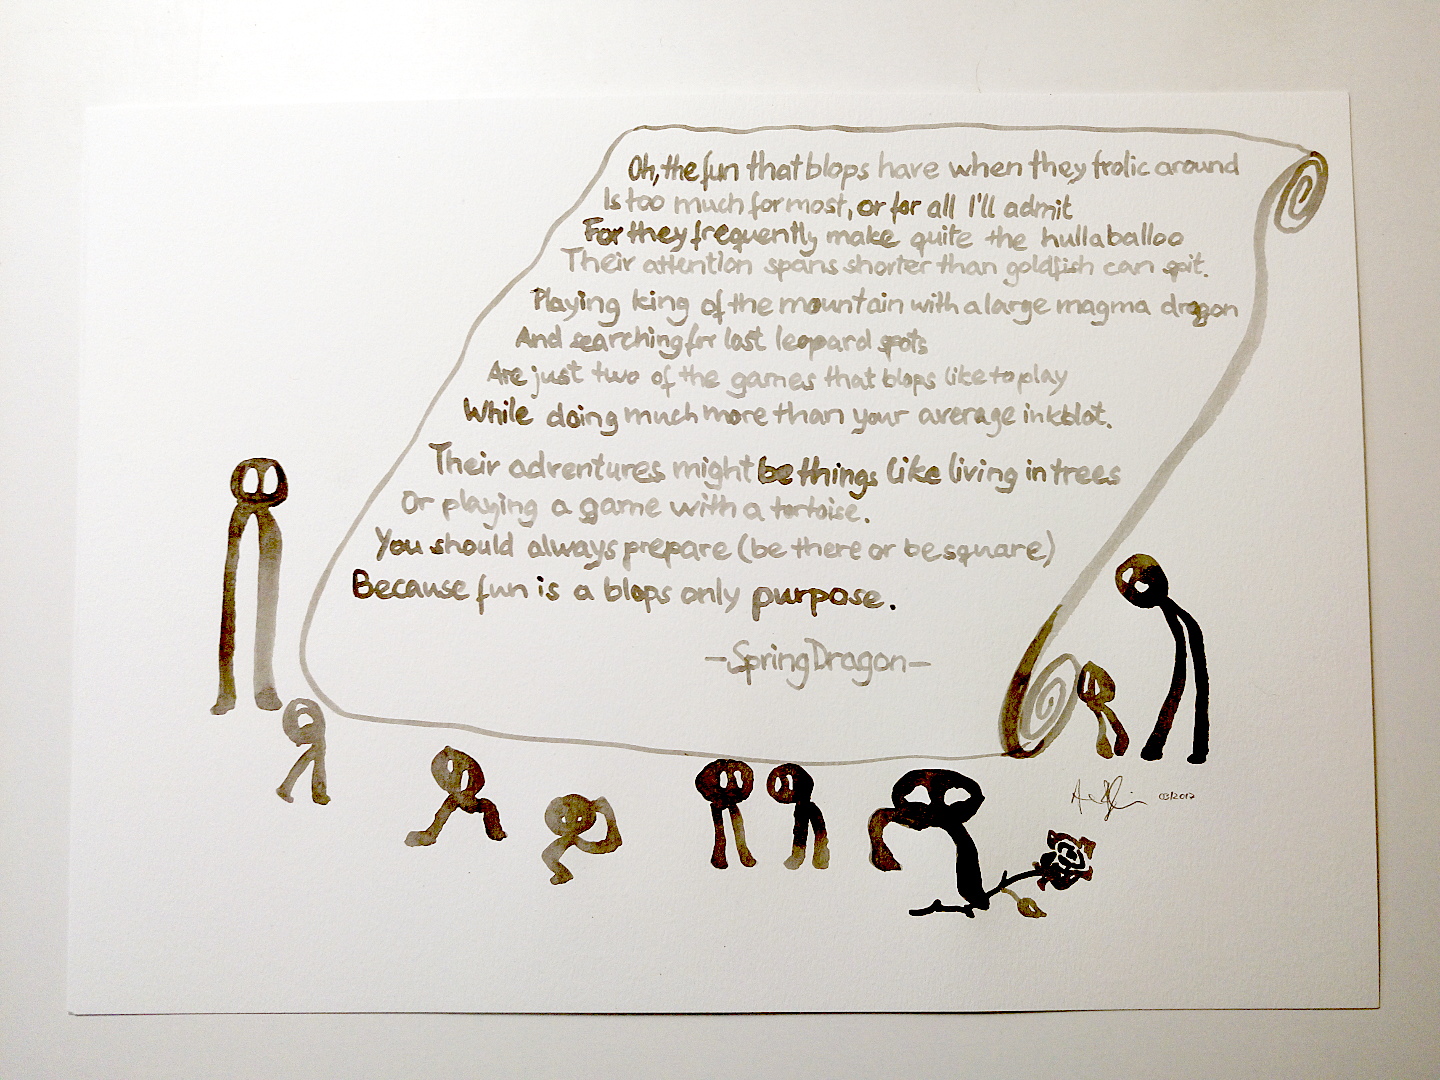 Oh, the fun that blops have when they frolic around
Is too much for most, or for all I'll admit
For they frequently make quite the hullaballoo
Their attention spans shorter than goldfish can spit.
Playing king of the mountain with a large magma dragon
And searching for lost leopard spots
Are just two of the games that blops like to play
While doing much more than your average inkblot.
Their adventures might be things like living in trees
Or playing a game with a tortoise.
You should always prepare (be there or be square)
Because fun is a blops only purpose.
-SpringDragon-
03/2012